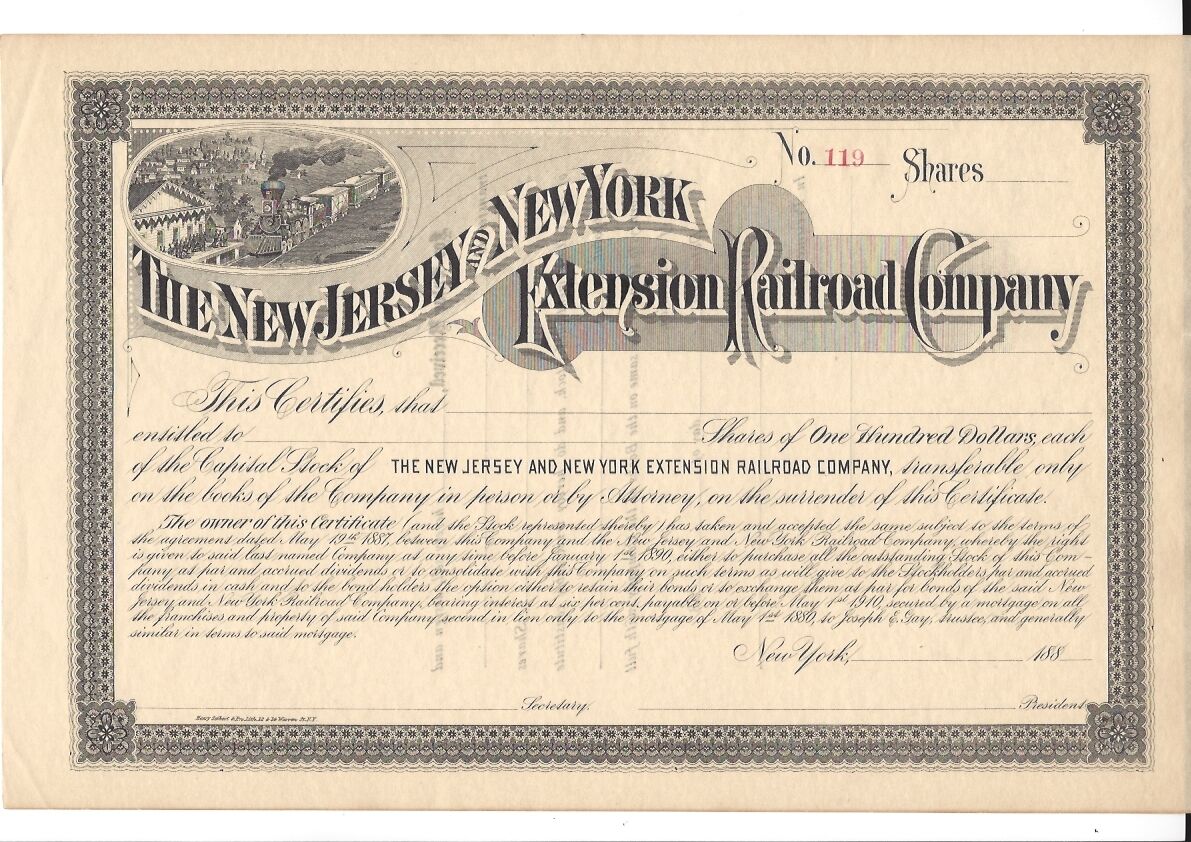 No. 119 Shares
THE NEW JERSEY AND NEW YORK
Extension Railroad Company
This Certifies, that
entitled to Shares of One Hundred Dollars, each
of the Capital Stock of THE NEW JERSEY AND NEW YORK EXTENSION RAILROAD COMPANY, transferable only
on the books of the Company in person or by Attorney, on the surrender of this Certificate.
The owner of this Certificate (and the Stock represented thereby) has taken and accepted the same subject to the terms of
the agreement dated May 19th 1887, between this Company and the New Jersey and New York Railroad Company, whereby the right
is given to said last named Company at any time before January 1st 1890, either to purchase all the outstanding Stock of this Com-
pany at par and accrued dividends or to consolidate with this Company on such terms as will give to the Stockholders par and accrued
dividends in cash and to the bond holders the option either to retain their bonds or to exchange them at par for bonds of the said New
Jersey and New York Railroad Company, bearing interest at six per cent. payable on or before May 1st 1910, secured by a mortgage on all
the franchises and property of said Company second in lien only to the mortgage of May 1st 1880, to Joseph E. Gay, trustee, and generally
similar in terms to said mortgage.
New York, 188
Secretary. President
Henry Seibert & Bro. Lith. 12 & 14 Warren St. N.Y.